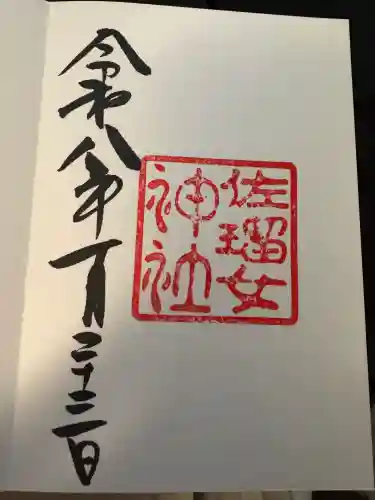 佐瑠女
神社
令和八年一月二十二日